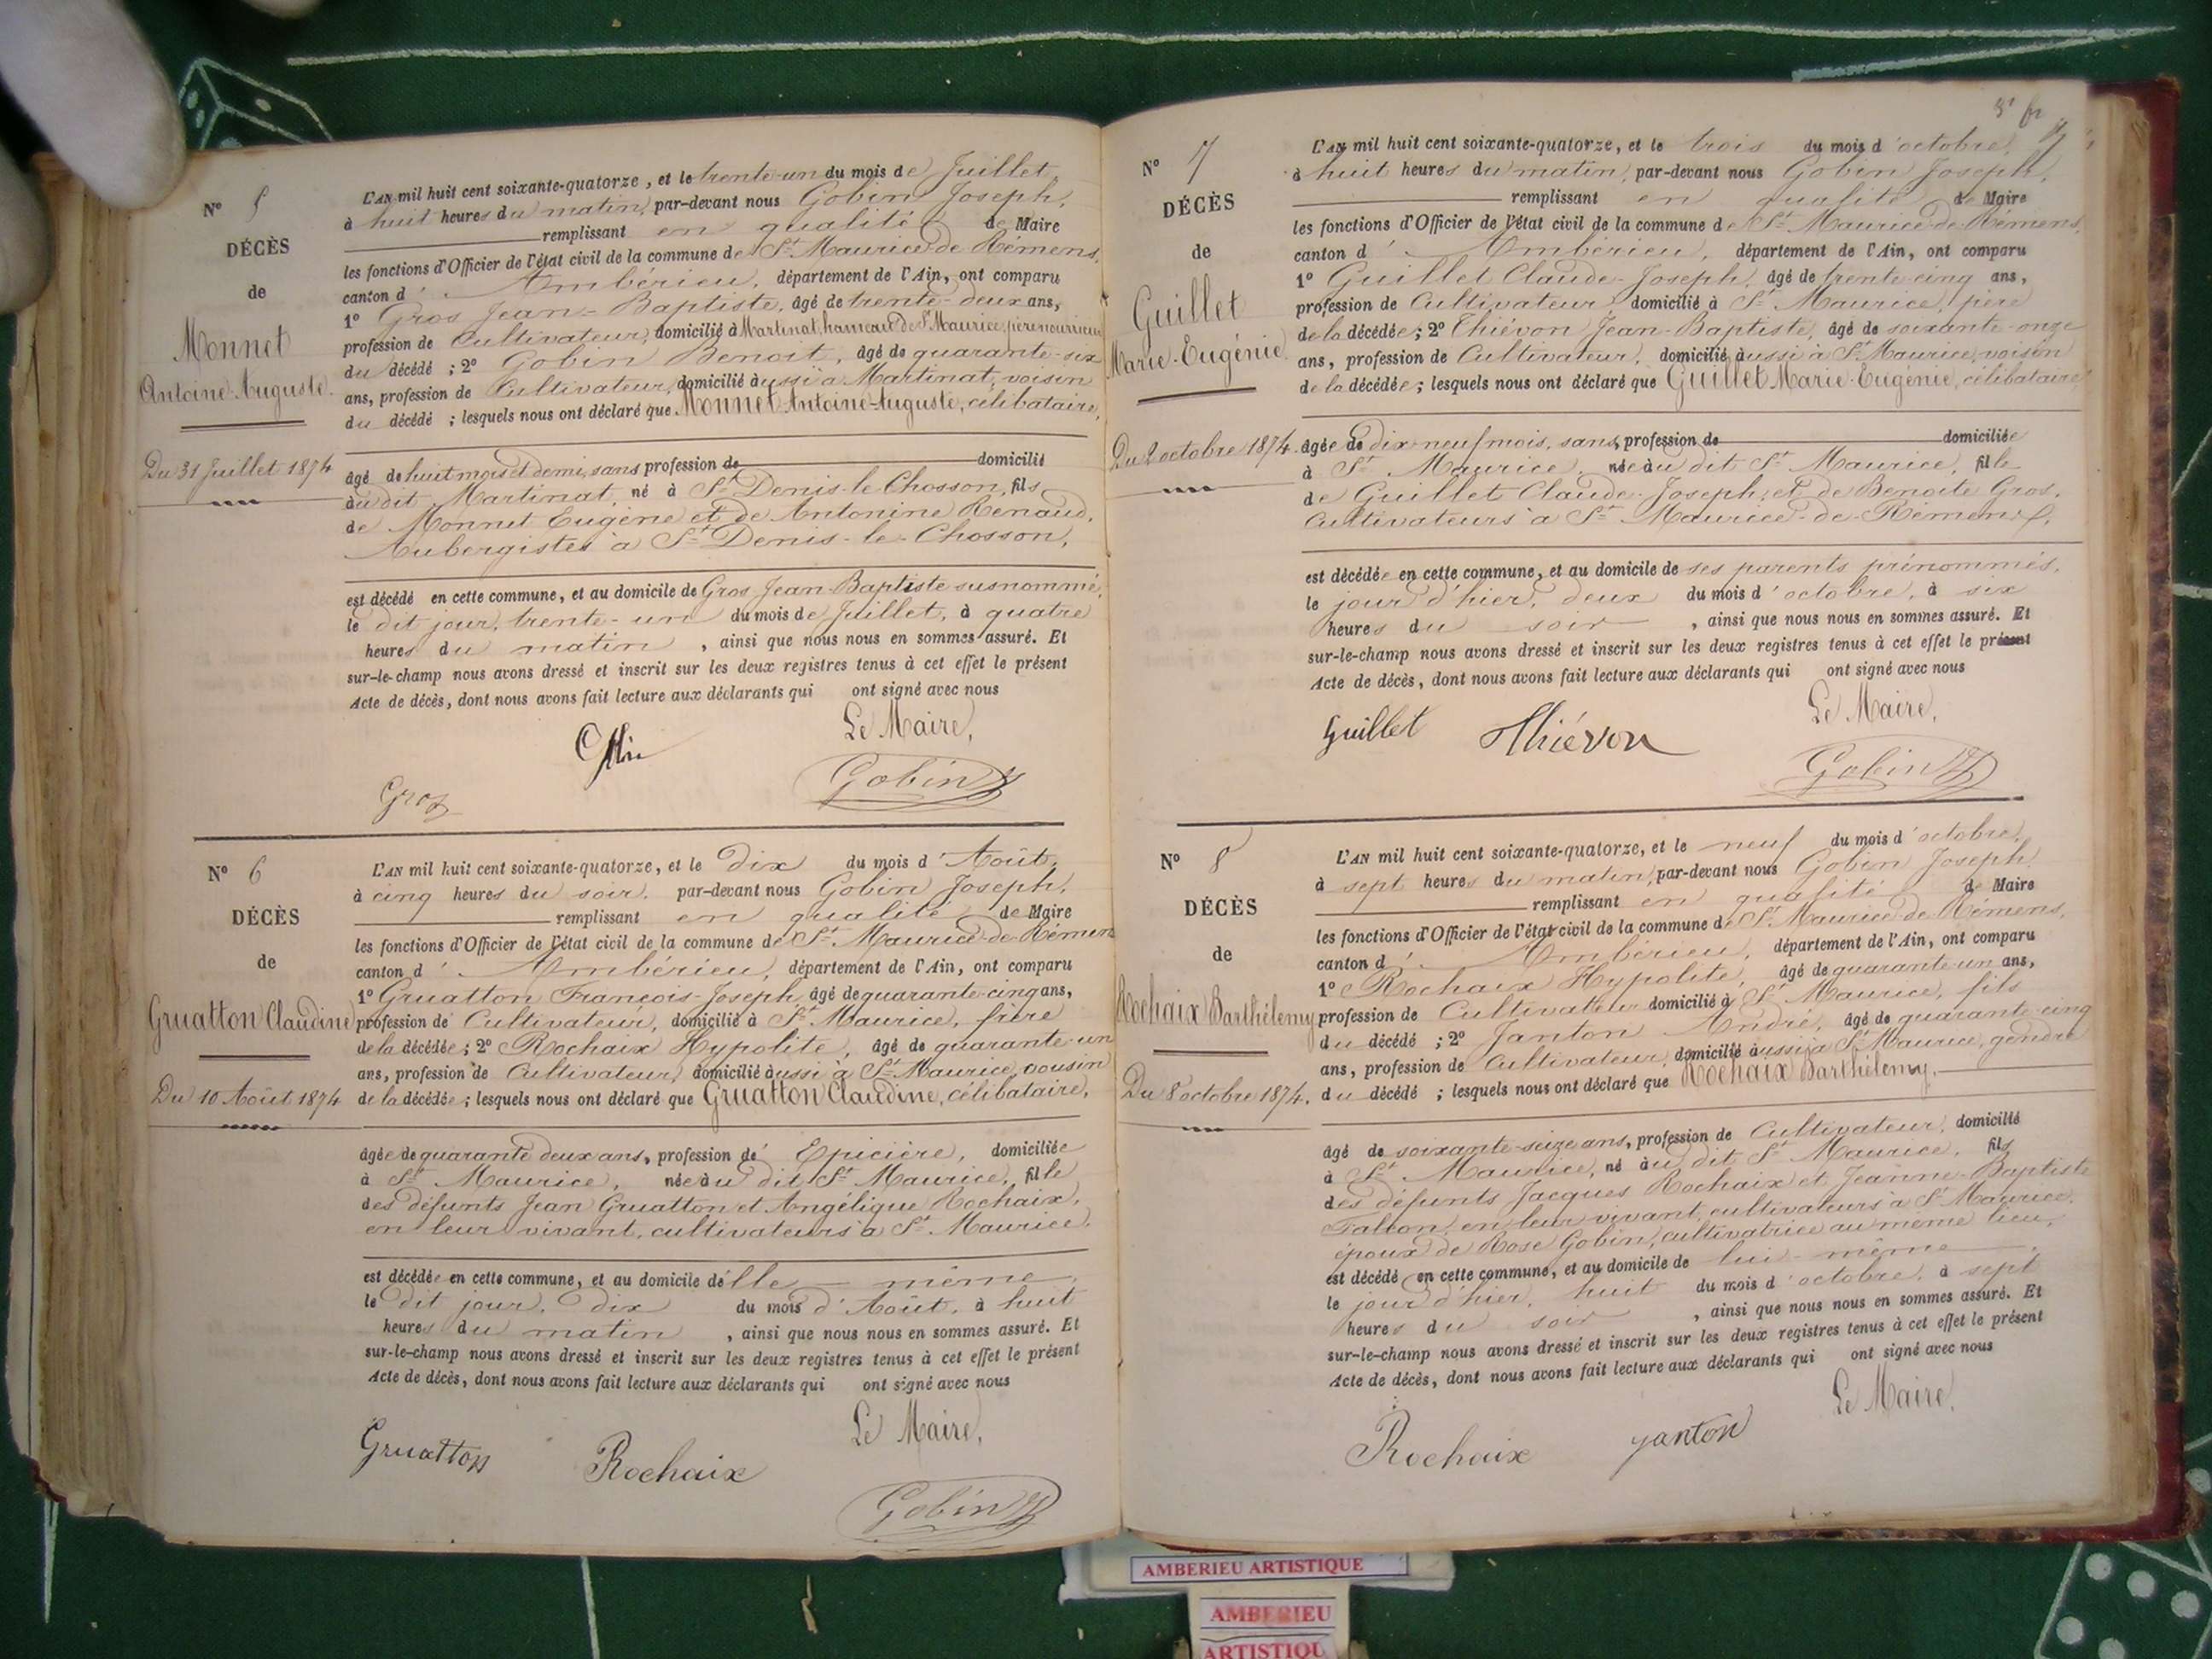 N° 5
DÉCÈS
de
Monnet
Antoine-Auguste.
Du 31 Juillet 1874
L'AN mil huit cent soixante-quatorze, et le trente-un du mois de Juillet,
à huit heures du matin, par-devant nous Gobin Joseph,
remplissant en qualité de Maire
les fonctions d'Officier de l'état civil de la commune de St Maurice de Rémens,
canton d'Ambérieu, département de l'Ain, ont comparu
1° Gros Jean-Baptiste, âgé de trente-deux ans,
profession de Cultivateur, domicilié à Martinat, hameau de St Maurice, père nourricier
du décédé ; 2° Gobin Benoit, âgé de quarante-six
ans, profession de Cultivateur, domicilié aussi à Martinat, voisin
du décédé ; lesquels nous ont déclaré que Monnet Antoine-Auguste, célibataire,
âgé de huit mois et demi, sans profession de domicilié
au dit Martinat, né à St Denis-le-Chosson, fils
de Monnet Eugène et de Antonine Renaud,
Aubergistes à St Denis-le-Chosson,
est décédé en cette commune, et au domicile de Gros Jean-Baptiste susnommé,
le dit jour, trente-un du mois de Juillet, à quatre
heures du matin, ainsi que nous nous en sommes assuré. Et
sur-le-champ nous avons dressé et inscrit sur les deux registres tenus à cet effet le présent
Acte de décès, dont nous avons fait lecture aux déclarants qui ont signé avec nous
Le Maire,
Gros
Gobin
N° 6
DÉCÈS
de
Gruatton Claudine
Du 10 Août 1874
L'AN mil huit cent soixante-quatorze, et le dix du mois d'Août,
à cinq heures du soir, par-devant nous Gobin Joseph,
remplissant en qualité de Maire
les fonctions d'Officier de l'état civil de la commune de St Maurice-de-Rémens
canton d'Ambérieu, département de l'Ain, ont comparu
1° Gruatton François-Joseph, âgé de quarante-cinq ans,
profession de Cultivateur, domicilié à St Maurice, frère
de la décédée ; 2° Rochaix Hypolite, âgé de quarante-un
ans, profession de Cultivateur, domicilié aussi à St Maurice, cousin
de la décédée ; lesquels nous ont déclaré que Gruatton Claudine, célibataire,
âgée de quarante deux ans, profession de Epicière, domiciliée
à St Maurice, née au dit St Maurice, fille
des défunts Jean Gruatton et Angélique Rochaix,
en leur vivant, cultivateurs à St Maurice,
est décédée en cette commune, et au domicile d'elle-même,
le dit jour, dix du mois d'Août, à huit
heures du matin, ainsi que nous nous en sommes assuré. Et
sur-le-champ nous avons dressé et inscrit sur les deux registres tenus à cet effet le présent
Acte de décès, dont nous avons fait lecture aux déclarants qui ont signé avec nous
Le Maire,
Gruatton Rochaix
Gobin
N° 7
DÉCÈS
de
Guillet
Marie-Eugénie
Du 2 octobre 1874.
L'AN mil huit cent soixante-quatorze, et le trois du mois d'octobre,
à huit heures du matin, par-devant nous Gobin Joseph,
remplissant en qualité de Maire
les fonctions d'Officier de l'état civil de la commune de St Maurice-de-Rémens,
canton d'Ambérieu, département de l'Ain, ont comparu
1° Guillet Claude-Joseph, âgé de trente-cinq ans,
profession de Cultivateur, domicilié à St Maurice, père
de la décédée ; 2° Thiévon Jean-Baptiste, âgé de soixante-onze
ans, profession de Cultivateur, domicilié aussi à St Maurice, voisin
de la décédée ; lesquels nous ont déclaré que Guillet Marie-Eugénie, célibataire,
âgée de dix-neuf mois, sans profession de domiciliée
à St Maurice, née au dit St Maurice, fille
de Guillet Claude-Joseph, et de Benoite Gros,
Cultivateurs à St Maurice-de-Rémens,
est décédée en cette commune, et au domicile de ses parents prénommés,
le jour d'hier, deux du mois d'octobre, à six
heures du soir, ainsi que nous nous en sommes assuré. Et
sur-le-champ nous avons dressé et inscrit sur les deux registres tenus à cet effet le présent
Acte de décès, dont nous avons fait lecture aux déclarants qui ont signé avec nous
Le Maire,
Guillet Thiévon
Gobin
N° 8
DÉCÈS
de
Rochaix Barthélemy
Du 8 octobre 1874.
L'AN mil huit cent soixante-quatorze, et le neuf du mois d'octobre,
à sept heures du matin, par-devant nous Gobin Joseph,
remplissant en qualité de Maire
les fonctions d'Officier de l'état civil de la commune de St Maurice-de-Rémens,
canton d'Ambérieu, département de l'Ain, ont comparu
1° Rochaix Hypolite, âgé de quarante-un ans,
profession de Cultivateur domicilié à St Maurice, fils
du décédé ; 2° Janton André, âgé de quarante-cinq
ans, profession de Cultivateur, domicilié aussi à St Maurice, gendre
du décédé ; lesquels nous ont déclaré que Rochaix Barthélemy,
âgé de soixante-seize ans, profession de Cultivateur, domicilié
à St Maurice, né au dit St Maurice, fils
des défunts Jacques Rochaix et Jeanne-Baptiste
Falcon, en leur vivant, cultivateurs à St Maurice,
époux de Rose Gobin, cultivatrice au même lieu,
est décédé en cette commune, et au domicile de lui-même,
le jour d'hier, huit du mois d'octobre, à sept
heures du soir, ainsi que nous nous en sommes assuré. Et
sur-le-champ nous avons dressé et inscrit sur les deux registres tenus à cet effet le présent
Acte de décès, dont nous avons fait lecture aux déclarants qui ont signé avec nous
Le Maire,
Rochaix Janton
AMBERIEU ARTISTIQUE
AMBERIEU
ARTISTIQU